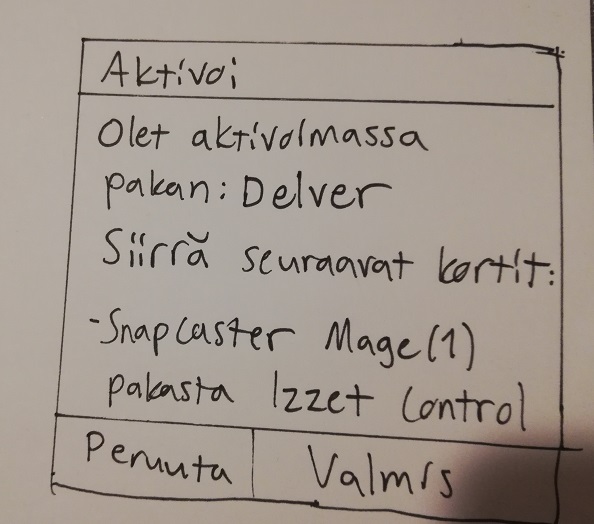 Aktivoi
Olet aktivoimassa
pakan: Delver
Siirrä seuraavat kortit:
-Snapcaster Mage(1)
pakasta Izzet Control
Peruuta
Valmis